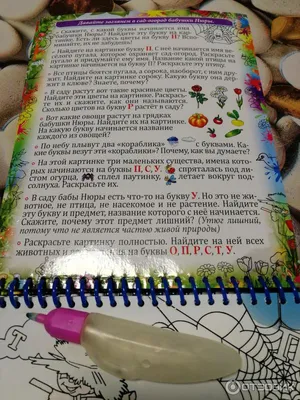 Давайте заглянем в сад-огород бабушки Нюры.
• Скажите, с какой буквы начинается имя
Найдите эту букву на
есть ли здесь цветы на букву П? Всели
вы, найти их и назвать?
• Найдите на картинке букву П. С неё начинается на-
Название какой птицы на
картинке начинается на букву П? Раскрасьте эту птицу.
• Все птицы боятся пугала, а сорока, наоборот, с ним дру-
жит. Найдите её на картинке. Какую букву она ищет
• В саду растут вот такие красивые цветы.
Найдите эти цветы на картинке. Раскрась-
те их и скажите, как они называются.
Сколько цветов на букву Р растёт в саду?
• Вот какие овощи растут на грядках
бабушки Нюры. Найдите их на картинке.
На какую букву начинается название
каждого из овощей?
• По небу плывут два «кораблика» с буквами. Ка-
кие буквы везут эти «кораблики»? Покажите их.
• На этой картинке три маленьких существа, имена кото-
рых начинаются на буквы П, С, У. спряталась под ли-
стом огурца, сплел паутинку, летает вокруг под-
солнуха. Раскрасьте их.
• В саду бабы Нюры есть что-то на букву У. Но это не жи-
вотное, не птица, не насекомое и не растение. Найдите
эту букву и предмет, название которого с неё начинается.
Скажите, почему этот предмет лишний? (Утюг лишний,
потому что не является частью живой природы)
• Раскрасьте картинку полностью. Найдите на ней всех
животных и на буквы О, П, Р, С, Т, У.
Т